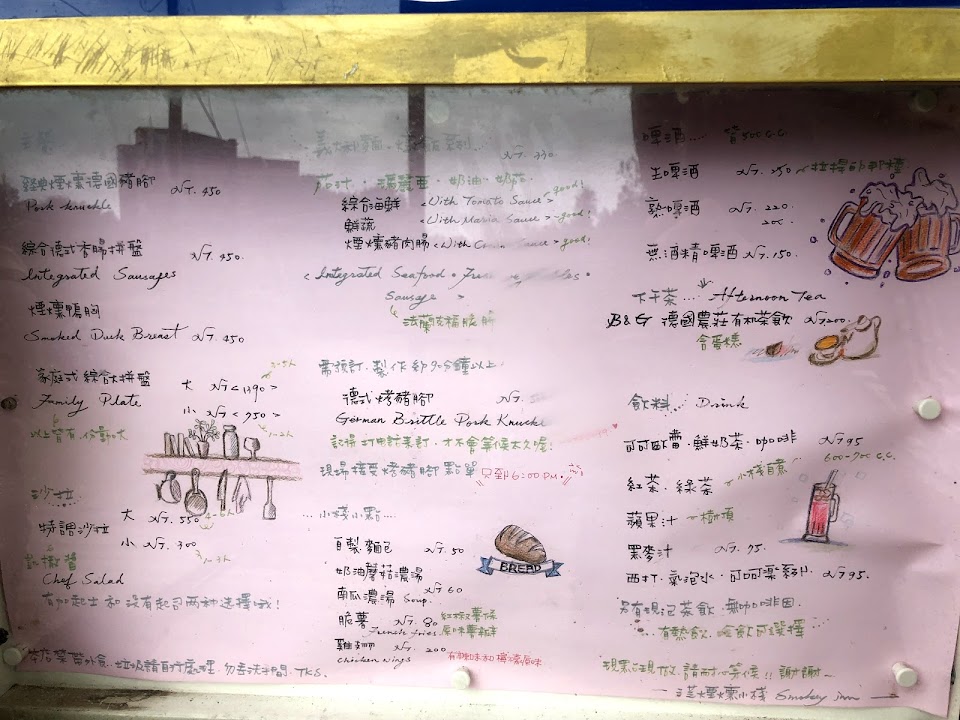 主菜
經典煙燻德國豬腳 NT. 450
Pork knuckle
綜合德式香腸拼盤 NT. 450.
Integrated Sausages
煙燻鴨胸
Smoked Duck Breast NT. 450
家庭式綜合大拼盤 大 NT <1390>
Family Plate 小 NT <950>
以上皆有.份量大
沙拉
特調沙拉 大 NT. 550 4-6人
小 NT. 300
Chef Salad
有加起士和沒有起司两种選擇哦!
NT. 330
茄汁.瑪麗亞.奶油.奶茄.
綜合海鮮 <With Tomato Sauce> good!
鮮蔬 <With Maria Sauce> good!
煙燻豬肉腸 <With Sauce> good!
<Integrated Seafood.
Sausage >
需預訂.製作約90分鐘以上.
德式烤豬腳 NT.
German Brittle Pork Knuckle
現場接受烤豬腳點單 只到6:00 PM.
...小棧小點....
自製麵包 NT. 50
BREAD
奶油蘑菇濃湯
南瓜濃湯 Soup. NT 60
脆薯 NT. 80 紅椒薯條
French fries 原味薯條
雞翅 NT. 200
Chicken Wings
啤酒.... 皆500 C.C.
生啤酒 NT. 250
熟啤酒 NT. 220.
200.
無酒精啤酒 NT. 150.
下午茶.... Afternoon Tea
B&G 德國農莊有机茶飲 NT 200.
含蛋糕
飲料.... Drink
可可歐蕾.鮮奶茶.咖啡 NT 95
600-700 C.C.
紅茶.綠茶 小棧自煮
蘋果汁 樹頂
黑麥汁 NT. 95.
西打.氣泡水.可可樂系列. NT 95.
另有現泡茶飲.無咖啡因.
有熱飲.冷飲可選擇
本店禁帶外食.垃圾請自行處理.勿丟洗手間. TKS.
現點現做.請耐心等候!! 謝謝~
煙燻小棧 Smokey inn